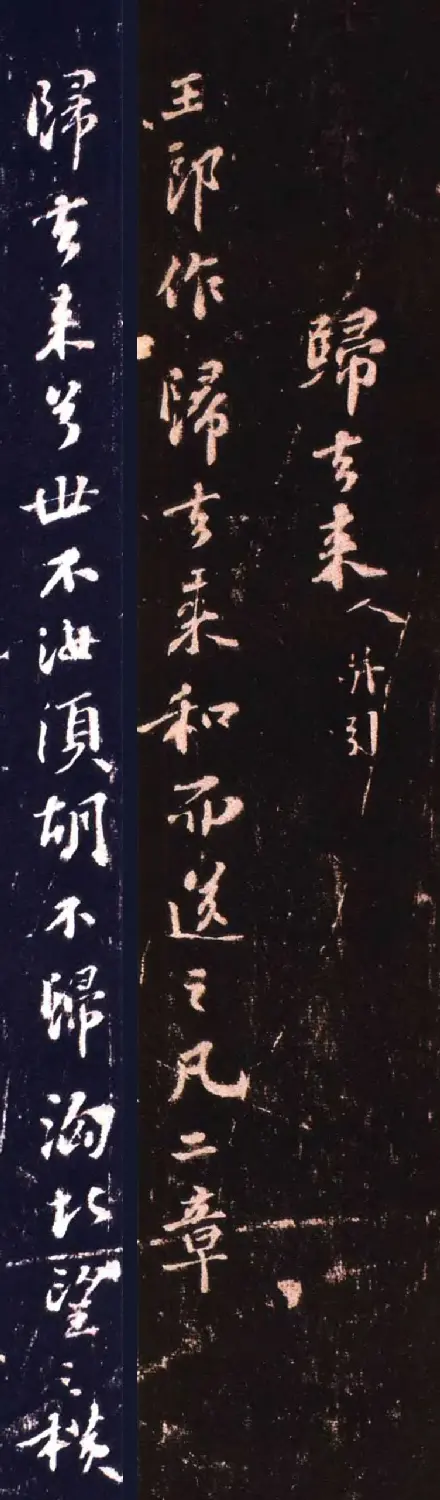 歸去来并引
王郎作歸去来和而送之凡二章
歸去来兮世不汝須胡不歸洶北望之横